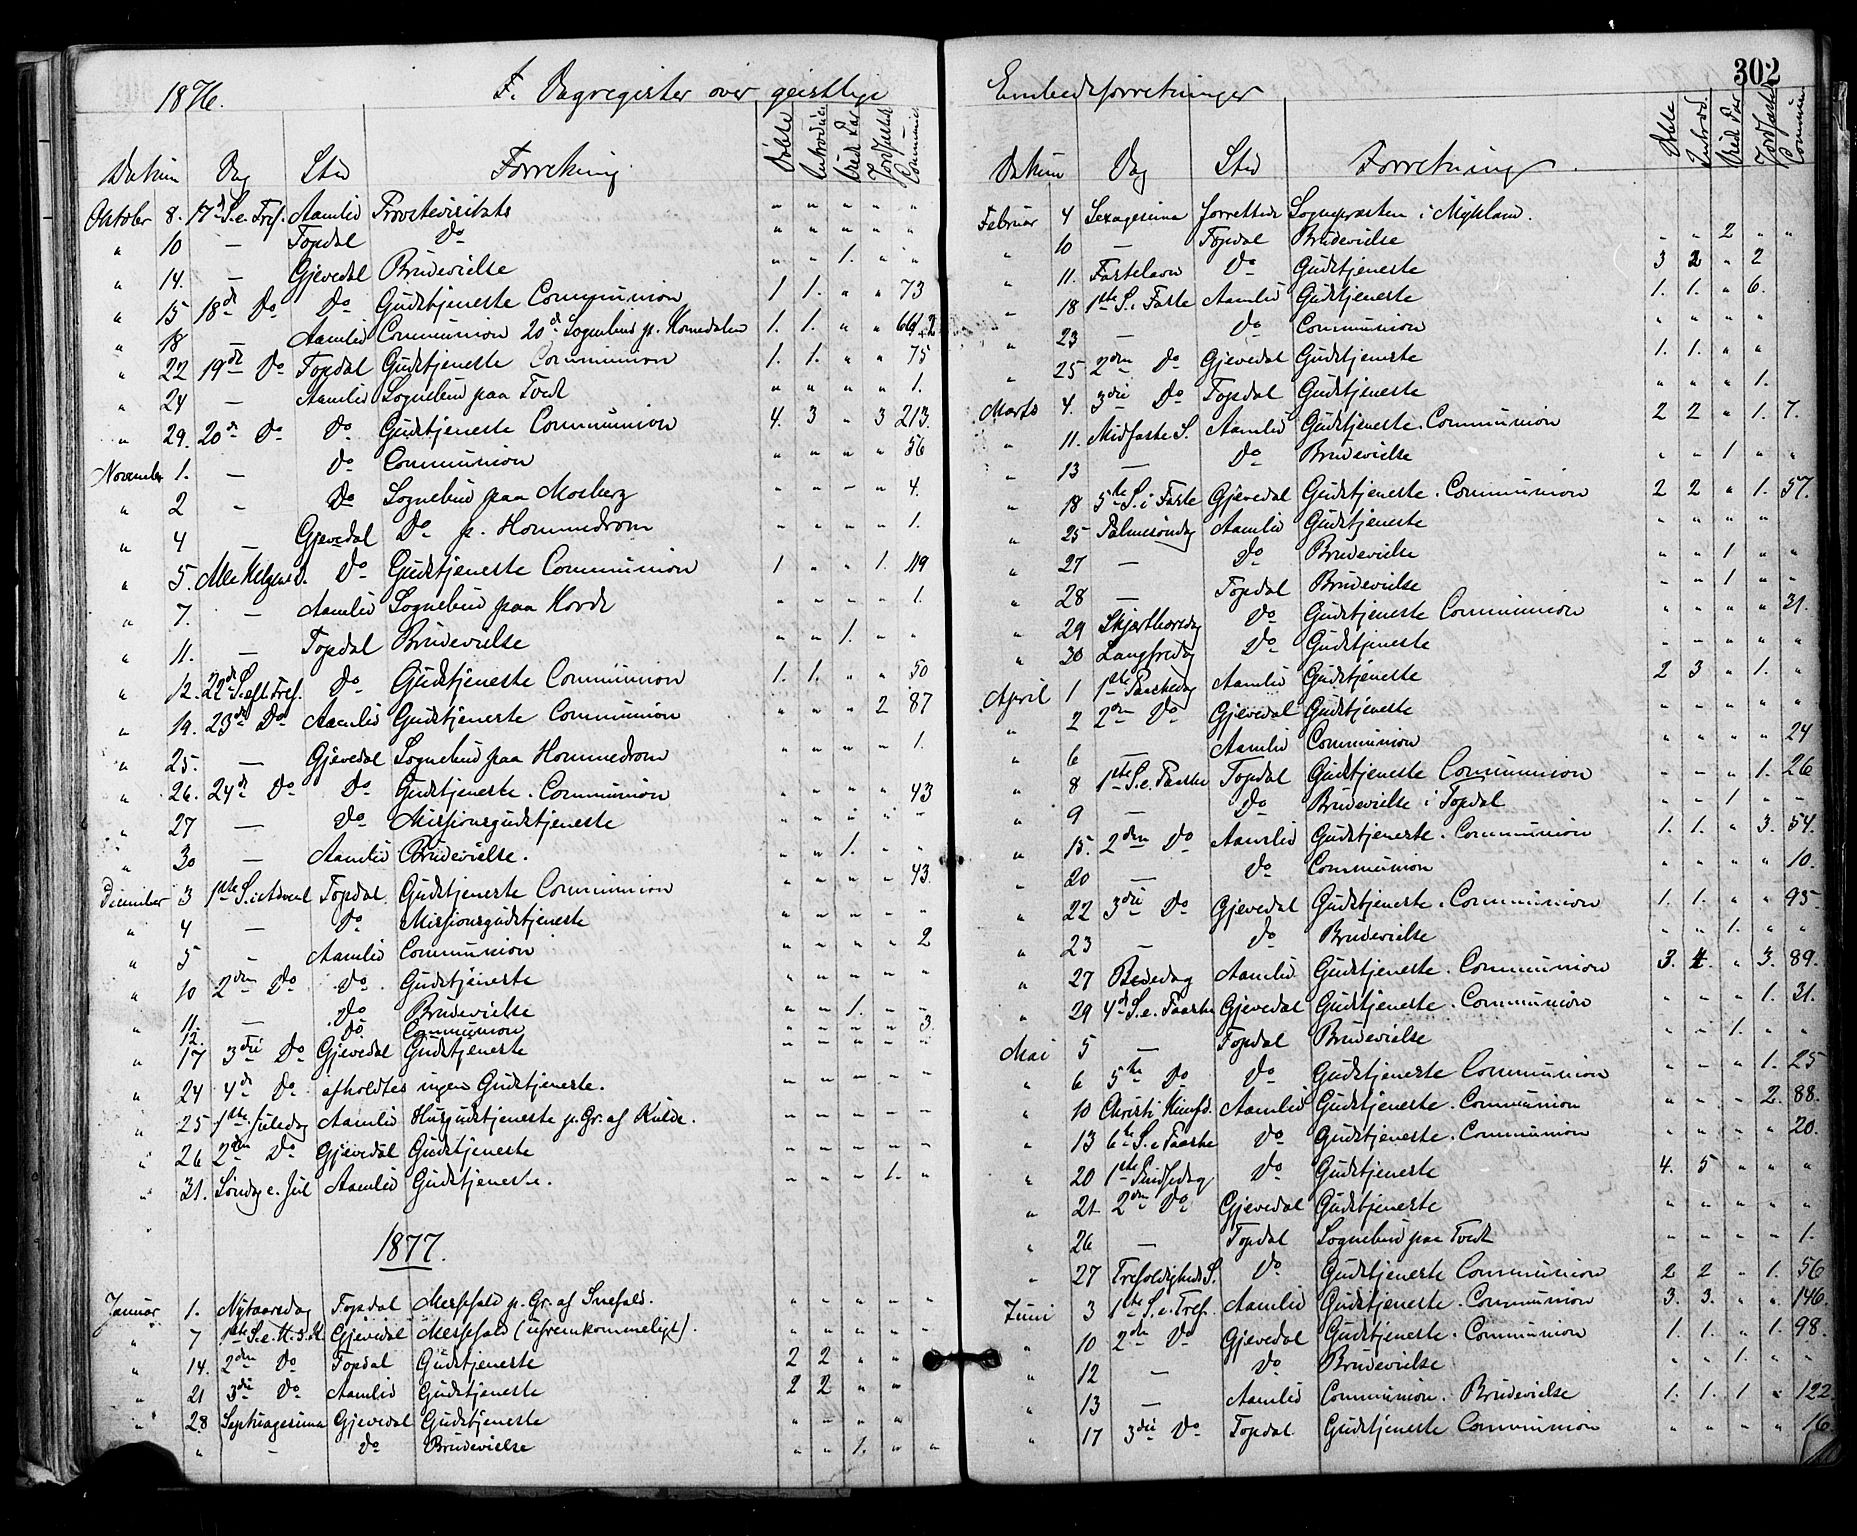 302
1876. F. Dagregister over geistlige Embedsforretninger
Datum Dag Sted Forretning Døbte Introduc. Vied. Par Jordfæstet Communic.
Oktober 8. 17de S. e. Tref. Aamlid Provstevisitats " " " " "
" 10 — Topdal Do " " " " "
" 14. — Gjevedal Brudevielse " " 1. " "
" 15 18de Do Do Gudstjeneste Communion 1 1. " " 73
" 18 — Aamlid Communion 20de Sognebud p. 1. 1. " " 64+2
" 22 19de Do Topdal Gudstjeneste Communion 1. 1. " " 75
" 24 — Aamlid Sognebud paa Tvedt " " " " 1.
" 29. 20de Do Do Gudstjeneste Communion 4. 3 " 3 213.
November 1. — Do Communion " " " " 56
" 2 - Do Sognebud paa Mosberg " " " " 4.
" 4 — Gjevedal Do p. Hommedrom " " " " 1.
" 5. Alle Helgens D. Do Gudstjeneste Communion 1 " " 1. 49
" 7. — Aamlid Sognebud paa " " " " 1.
" 11. — Topdal Brudevielse " " 1. " "
" 12. 22de S. eft. Tref. Do Gudstjeneste Communion 1. 1. " " 50
" 19. 23de Do Aamlid Gudstjeneste Communion " " " 2 87
" 25. — Gjevedal Sognebud paa Hommedrom " " " " 1.
" 26. 24de Do Do Gudstjeneste. Communion " " " " 43
" 27 — Do Missionsgudstjeneste " " " " "
" 30 — Aamlid Brudevielse. " " 1. " "
December 3 1ste S. i Advent Topdal. Gudstjeneste Communion " " " " 43.
" 4 — Do Missionsgudstjeneste " " " " "
" 5 - Aamlid Communion " " " " 2
" 10 2den Do Do. Gudstjeneste " " " " "
" 11. — Do Brudevielse " " 1. " "
12. Do Communion " " " " 3.
" 17 3die Do Gjevedal Gudstjeneste " " " " "
" 24 4de Do. afholdtes ingen Gudstjeneste. " " " " "
" 25 1ste Juledag Aamlid Husgudstjeneste p. Gr. af Kulde. " " " " "
" 26 2den Do Gjevedal Gudstjeneste " " " " "
" 31. Søndag e. Jul Aamlid Gudstjeneste. " " " 1. "
1877.
Januar 1. Nytaarsdag Topdal Messefald p. Gr. af Snefald. " " " " "
" 7 1ste S. e. H. 3 K. Gjevedal Messefald (ufremkommeligt). " " " " "
" 14. 2den Do Topdal Gudstjeneste 2 2 " "
" 21 3die Do Aamlid Gudstjeneste 2 2 " "
" 28 Septuagesima Gjevedal Gudstjeneste " " " "
" " - Do Brudevielse " " 1. " "
Datum Dag Sted Forretning Døbte Introd. Vied Par Jordfæstet Commun.
Februar 4 Sexagesima forrettede Sognepræsten i Mykland.
" 10 — Topdal Brudevielse " " 2 " "
" 11. Fastelavn Do Gudstjeneste 3 2 " 2
" 18 1ste S. i Faste Aamlid Gudstjeneste 1. 1. " 6.
" 23 — Do Communion " " " " "
" 25 2den Do Gjevedal Gudstjeneste 1. 1. " "
Marts 4. 3die Do Topdal Gudstjeneste " " " 1.
" 11. Midfaste S. Aamlid Gudstjeneste. Communion 2 2 " 1. 7.
" 13 — Do Brudevielse " " 1 " "
" 18 5te S. i Faste Gjevedal Gudstjeneste. Communion 2 2 " 1. 57.
" 25 Palmesøndag Aamlid Gudstjeneste " " " "
" 27 — Do Brudevielse " " 1 " "
" 28 — Topdal Brudevielse " " 1 " "
" 29 Skjærthorsdag Do Gudstjeneste Communion " " " " 31.
" 30 Langfredag Do Gudstjeneste " " " " "
April 1 1ste Paaskedag Aamlid Gudstjeneste 2 3 " 1. "
" 2 2den Do Gjevedal Gudstjeneste " " " " "
" 6 — Aamlid Communion " " " " 24
" 8 1ste S. e. Paaske Topdal Gudstjeneste Communion " " " 1. 26
" 9 — Do Brudevielse i Topdal " " 1 " "
" 15. 2den Do Aamlid Gudstjeneste. Communion 1. 1. " 3. 54.
" 20 — Do Communion " " " " 10.
" 22 3die Do Gjevedal Gudstjeneste. Communion 1. 1. " " 95.
" 23 - Do Brudevielse " " 1. " "
" 27 Bededag Aamlid Gudstjeneste. Communion 3. 4. " 3. 89.
" 29 4de S. e. Paaske Gjevedal Gudstjeneste. Communion " " " 1. 31.
Mai 5 — Topdal Brudevielse " " 1. " "
" 6 5te Do Do Gudstjeneste Communion " " " 1. 25
" 10 Christi Himfd. Aamlid Gudstjeneste. Communion " " " 2. 88.
" 13 6te S. e Paaske Do Gudstjeneste. Communion " " " " 20.
" 20 1ste Pindsedag Do Gudstjeneste 4. 5 " " "
" 21 2den Do Gjevedal Gudstjeneste " " " " "
" 26 — Topdal Sognebud paa Tvedt " " " " 1.
" 27 Trefoldigheds S. Do Gudstjeneste Communion 2 2 " 1. 56
Juni 3 1ste S. e. Tref. Aamlid Gudstjeneste. Communion 3. 3. " " 146.
" 10 2den Do Gjevedal Gudstjeneste. Communion 1. 1. " 1. 98.
" 12 — Do Brudevielse " " 1. " "
" 13 — Aamlid Communion. Brudevielse 1. 1. 1 " 122
" 17 3die Do Topdal Gudstjeneste Communion " " " " 16